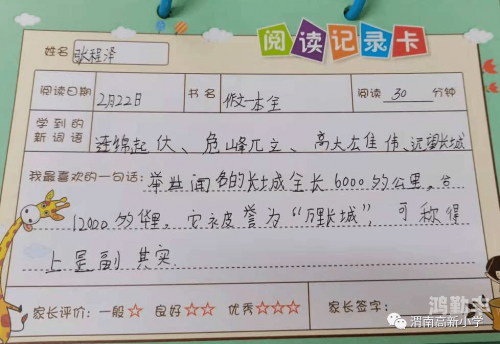 阅读记录卡
姓名 张程泽
阅读日期 2月22日 书名 作文本全 阅读 30 分钟
学到的新词语 连绵起伏、危峰兀立、高大雄伟、远望长城
我最喜欢的一句话:举世闻名的长城全长6000多公里。合
12000多华里。它被誉为“万里长城”,可称得
上是副其实
家长评价:一般☆ 良好☆☆ 优秀☆☆☆ 家长签字:
鸿勤
渭南高新小学